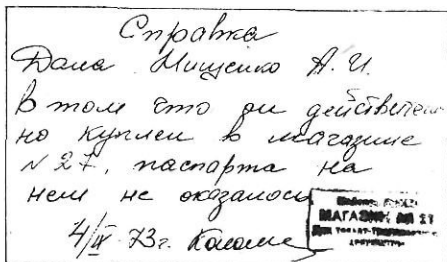 Справка
Дана Мищенко А.И.
в том что он действитель
но куплен в магазине
№ 27, паспарта на
нем не оказалось
4/IX 73г.
МАГАЗИН №